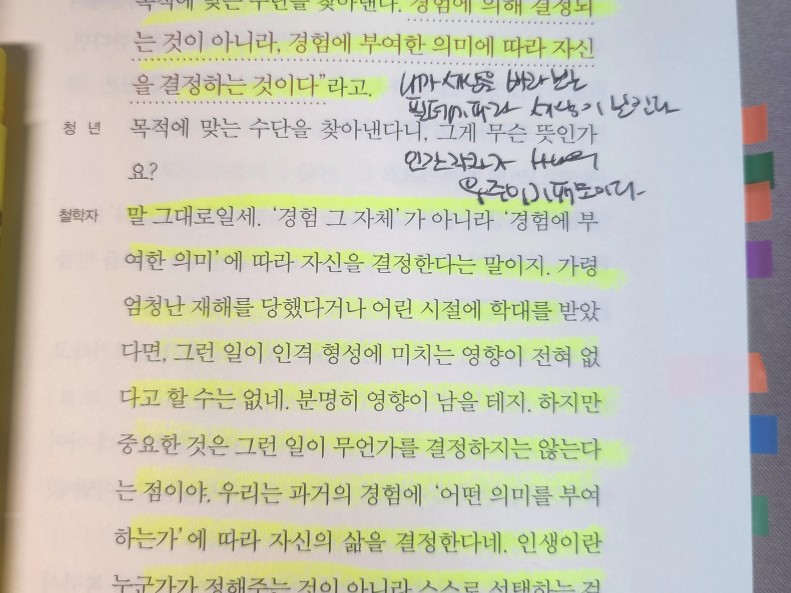 목적에 맞는 수단을 찾아낸다. 경험에 의해 결정되
는 것이 아니라, 경험에 부여한 의미에 따라 자신
을 결정하는 것이다”라고.
내가 세상을 바라보는
필터에 따라 세상이 보인다
청 년 목적에 맞는 수단을 찾아낸다니, 그게 무슨 뜻인가
요?
인간 각자가 하나의
우주이기 때문이다.
철학자 말 그대로일세. ‘경험 그 자체’가 아니라 ‘경험에 부
여한 의미’에 따라 자신을 결정한다는 말이지. 가령
엄청난 재해를 당했다거나 어린 시절에 학대를 받았
다면, 그런 일이 인격 형성에 미치는 영향이 전혀 없
다고 할 수는 없네. 분명히 영향이 남을 테지. 하지만
중요한 것은 그런 일이 무언가를 결정하지는 않는다
는 점이야. 우리는 과거의 경험에 ‘어떤 의미를 부여
하는가’에 따라 자신의 삶을 결정한다네. 인생이란
누군가가 정해주는 것이 아니라 스스로 선택하는 걸